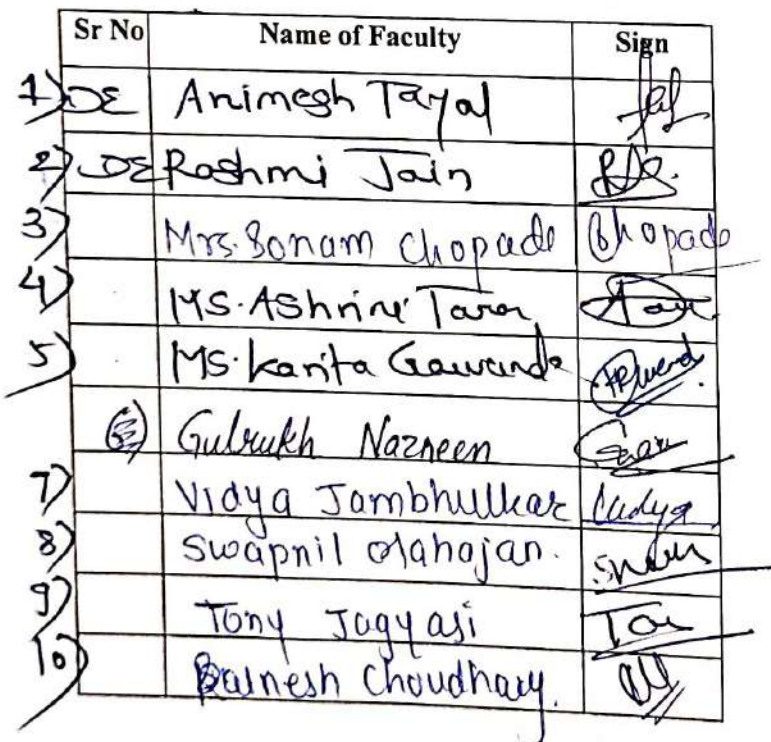 Sr No Name of Faculty Sign
1) DE Animesh Tayal
2) DE Roshmi Jain
3) Mrs. Sonam Chopade Chopade
4) MS. AShnini Tarar
5) MS. Kanita Gawande
Gulrukh Nazneen
7) Vidya Jambhulkar Vidya
8) Swapnil Mahajan.
9) Tony Jagyasi
10) Choudhary.